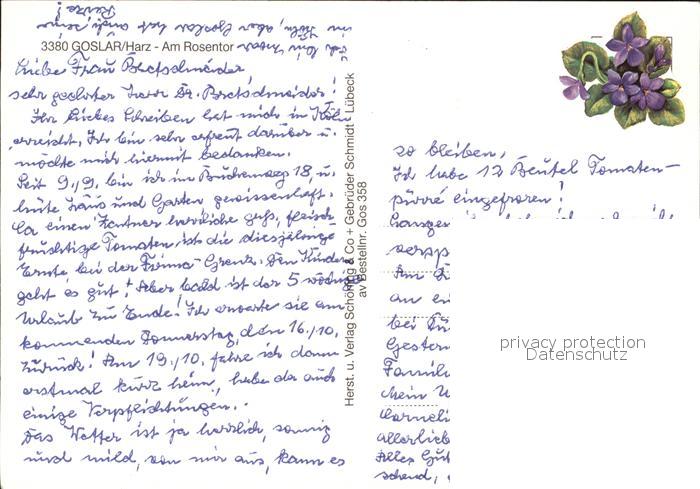 3380 GOSLAR/Harz - Am Rosentor
Liebe Frau Bretschneider,
sehr geehrter Herr Dr. Bretschneider!
Ihr liebes Schreiben hat mich in Köln
erreicht. Ich bin sehr erfreut darüber u.
möchte mich hiermit bedanken.
Seit 9./9. bin ich im Buchenweg 18 u.
hüte Haus und Garten gewissenhaft.
Ca einen Zentner herrliche gr., fleisch
fruchtige Tomaten, ist die diesjährige
Ernte bei der Firma Grenz. Den Kindern
geht es gut! Aber bald ist der 5 wöchige
Urlaub zu Ende! Ich erwarte sie am
kommenden Donnerstag, den 16./10.
zurück! Am 19./10. fahre ich dann
erstmal kurz heim, habe da auch
einige Verpflichtungen.
Das Wetter ist ja herrlich, sonnig
und mild, von mir aus, kann es
so bleiben,
Ich habe 12 Beutel Tomaten-
pürré eingefroren!
verpp
Am
an ei
bei
Gestern
Famili
mein U
Corneli
allerlieb
Alles Gut
Ich bin
in Köln, aber Goslar hat auch seine
Reize!
Herst. u. Verlag Schöning & Co + Gebrüder Schmidt · Lübeck
av Bestellnr. Gos 358
privacy protection
Datenschutz